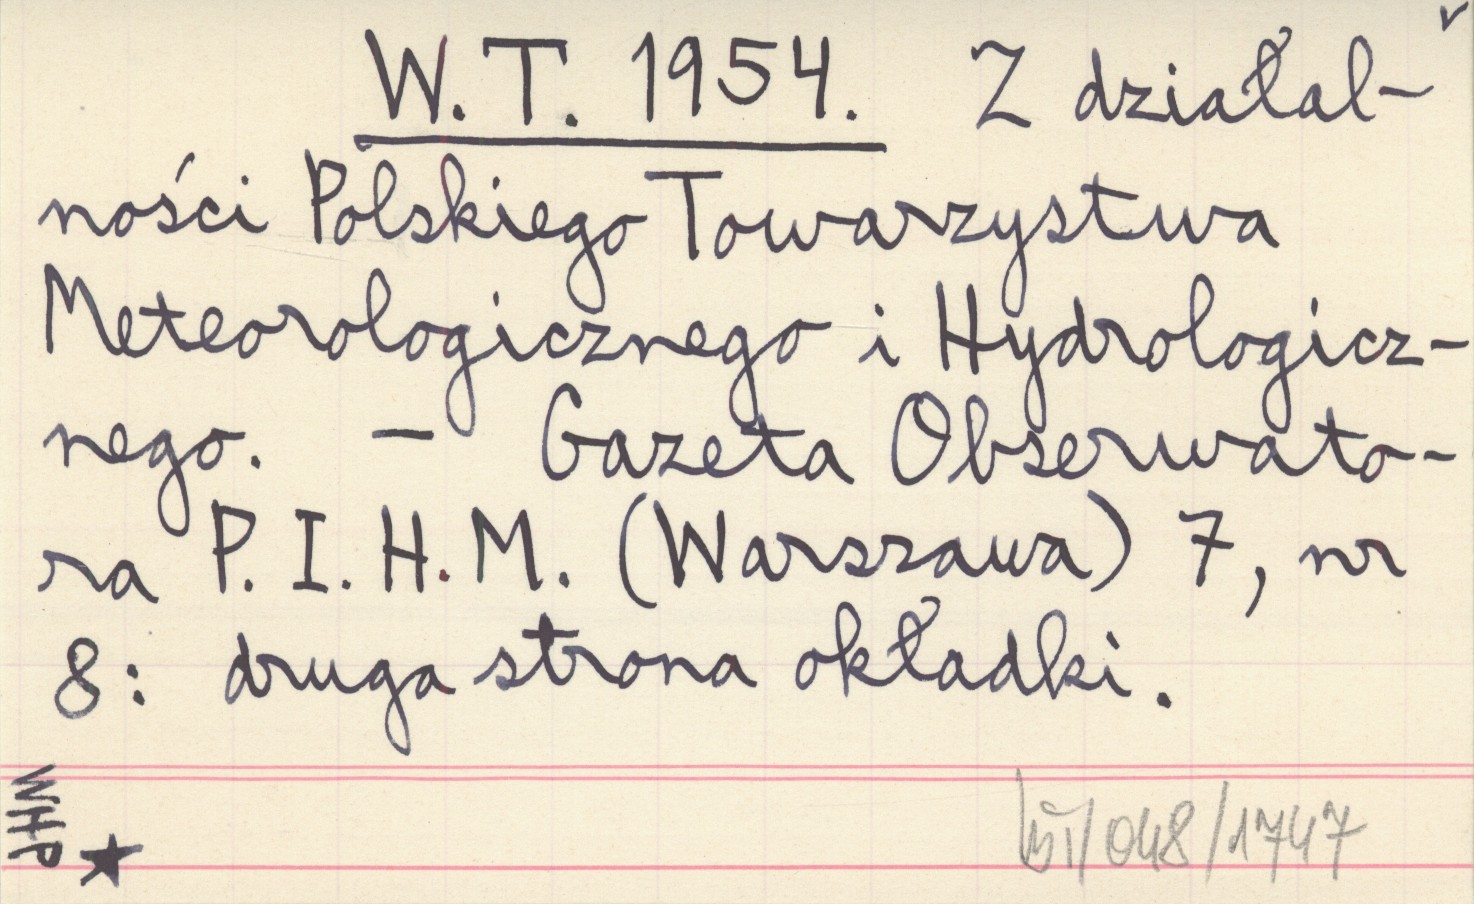 W. T. 1954. Z działal-
ności Polskiego Towarzystwa
Meteorologicznego i Hydrologicz-
nego. - Gazeta Obserwato-
ra P. I. H. M. (Warszawa) 7, nr
8: druga strona okładki.
WHP
/048/1747